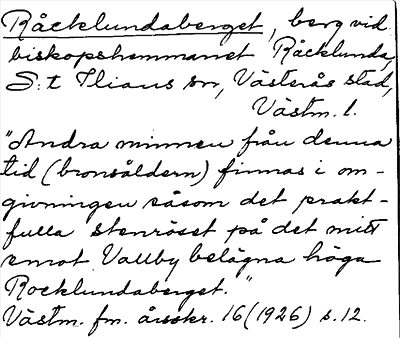 Råcklundaberget, berg vid
biskopshemmanet Råcklunda,
S:t Ilians sn, Västerås stad,
Västm. l.
"Andra minnen från denna
tid (bronsåldern) finnas i om-
givningen såsom det prakt-
fulla stenröset på det mitt
emot Vallby belägna höga
Rocklundaberget."
Västm. fm. årsskr. 16 (1926) s. 12.